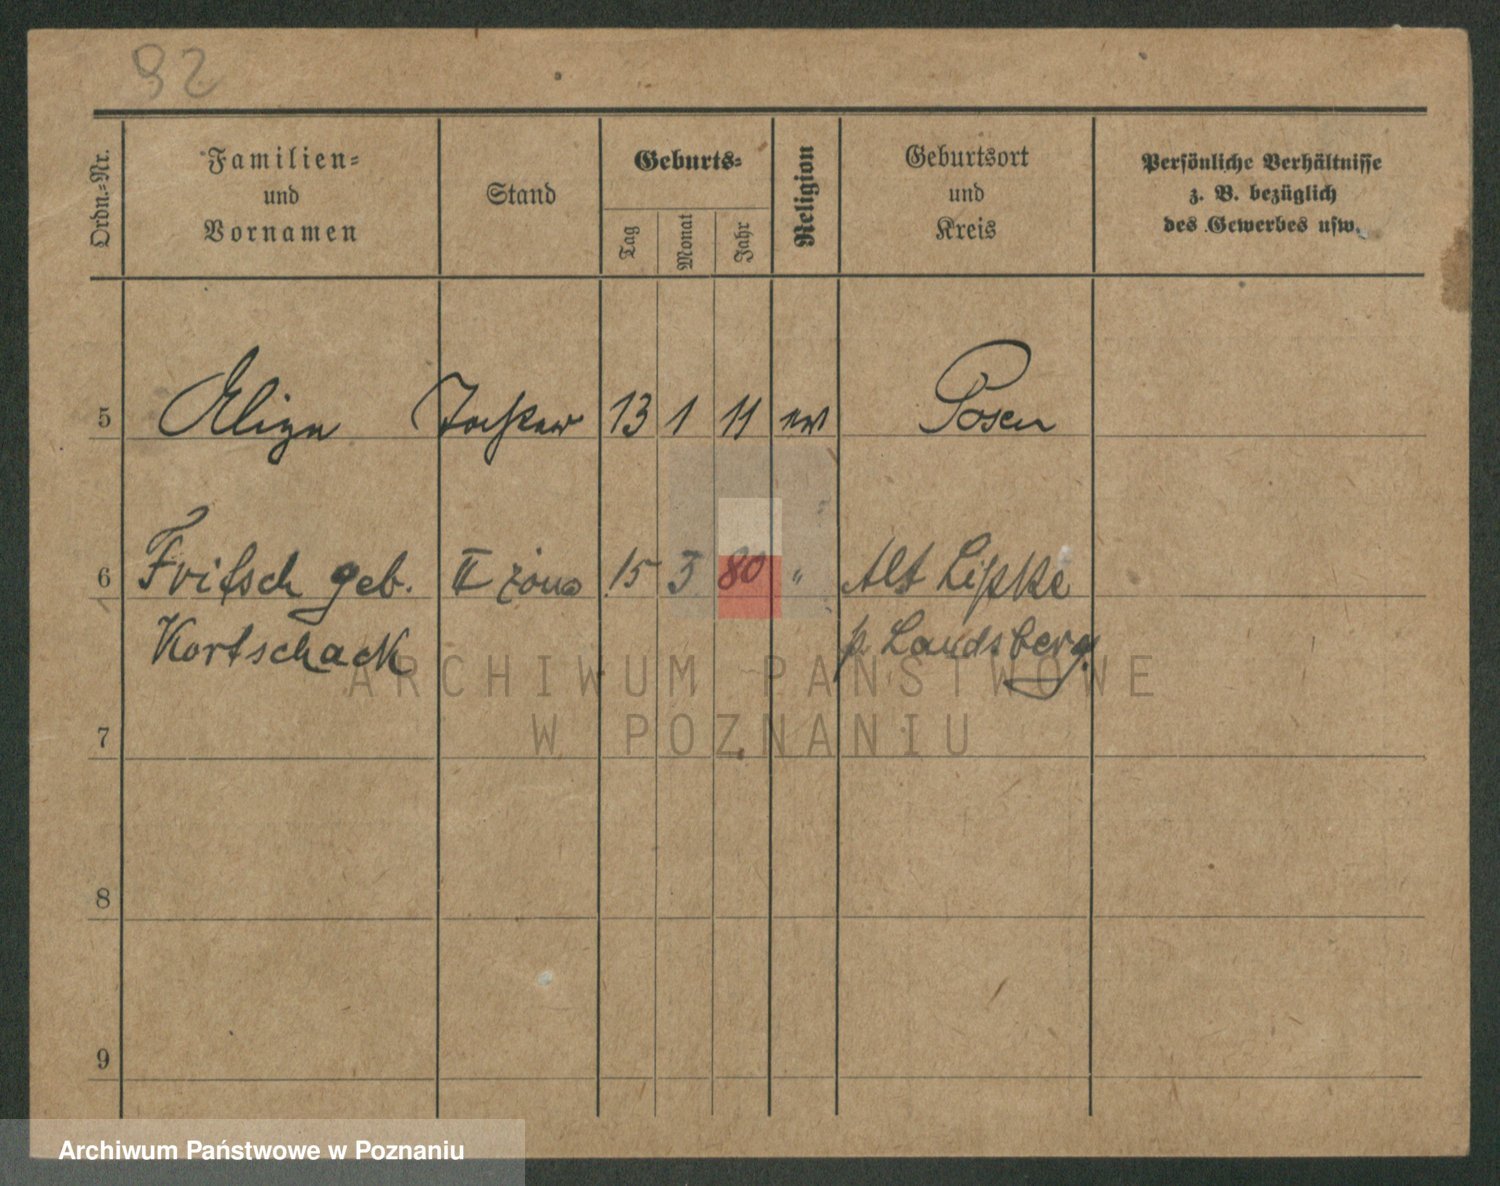 92
Ordn.-Nr.
Familien-
und
Vornamen
Stand
Geburts-
Tag
Monat
Jahr
Religion
Geburtsort
und
Kreis
Persönliche Verhältnisse
z. B. bezüglich
des Gewerbes usw.
5 13 1 11 ew Posen
6 Fritsch geb. II żona 15 3 80 " Alt Lipke
Kortschack p Landsberg.
7
8
9
ARCHIWUM PAŃSTWOWE
W POZNANIU
Archiwum Państwowe w Poznaniu